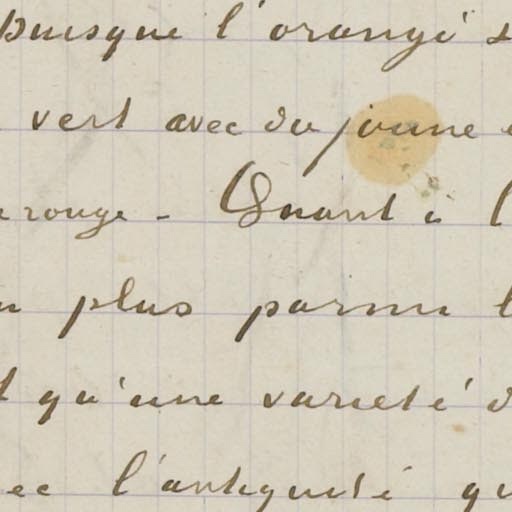 puisque l'orangé s
vert avec du jaune e
rouge - Quant à l
plus parmi l
t qu'une varieté d
ec l'antiquité qu